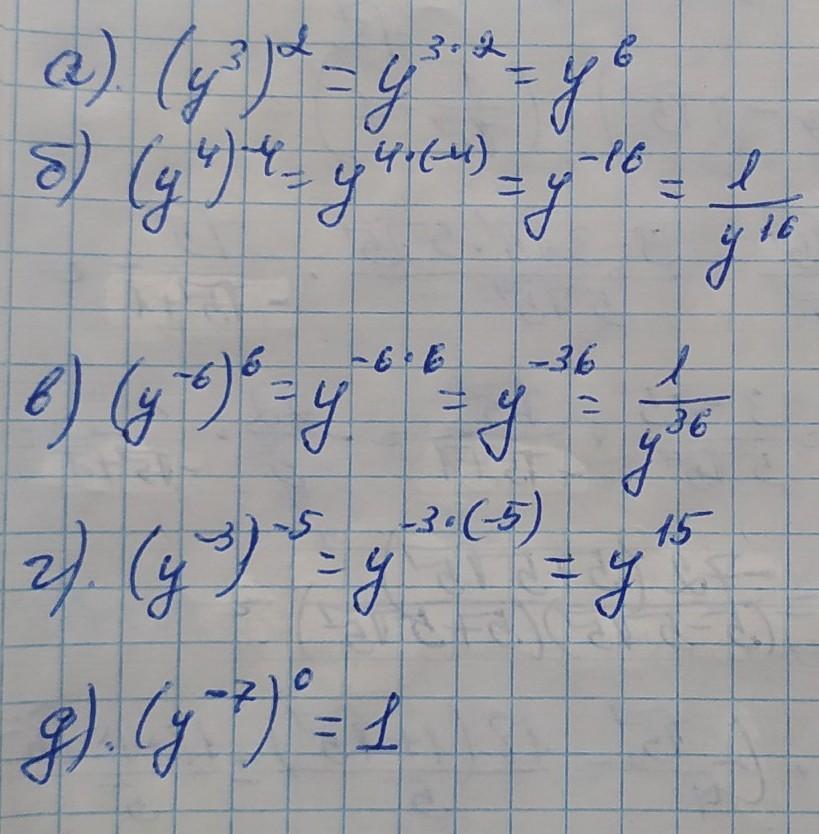 а). (y³)² = y³·² = y⁶
б) (y⁴)⁻⁴ = y⁴·⁽⁻⁴⁾ = y⁻¹⁶ = 1/y¹⁶
в) (y⁻⁶)⁶ = y⁻⁶·⁶ = y⁻³⁶ = 1/y³⁶
г). (y⁻³)⁻⁵ = y⁻³·⁽⁻⁵⁾ = y¹⁵
д). (y⁻⁷)⁰ = 1